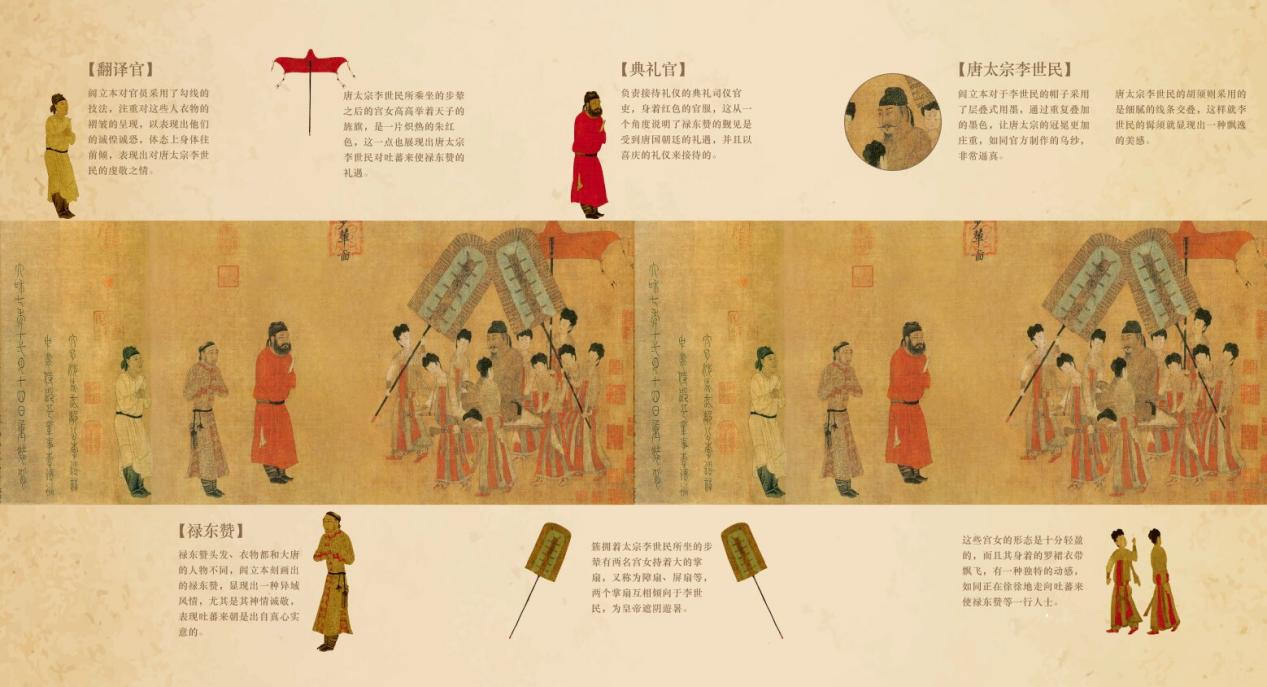 【翻译官】
阎立本对官员采用了勾线的
技法，注重对这些人衣物的
褶皱的呈现，以表现出他们
的诚惶诚恐，体态上身体往
前倾，表现出对唐太宗李世
民的虔敬之情。
唐太宗李世民所乘坐的步辇
之后的宫女高高举着天子的
旌旗，是一片炽热的朱红
色，这一点也展现出唐太宗
李世民对吐蕃来使禄东赞的
礼遇。
【典礼官】
负责接待礼仪的典礼司仪官
吏，身着红色的官服，这从一
个角度说明了禄东赞的觐见是
受到唐国朝廷的礼遇，并且以
喜庆的礼仪来接待的。
【唐太宗李世民】
阎立本对于李世民的帽子采用
了层叠式用墨，通过重复叠加
的墨色，让唐太宗的冠冕更加
庄重，如同官方制作的乌纱，
非常逼真。
唐太宗李世民的胡须则采用的
是细腻的线条交叠，这样就李
世民的髯须就显现出一种飘逸
的美感。
【禄东赞】
禄东赞头发、衣物都和大唐
的人物不同，阎立本刻画出
的禄东赞，显现出一种异域
风情，尤其是其神情诚敬，
表现吐蕃来朝是出自真心实
意的。
簇拥着太宗李世民所坐的步
辇有两名宫女持着大的掌
扇，又称为障扇、屏扇等，
两个掌扇互相倾向于李世
民，为皇帝遮阴避暑。
这些宫女的形态是十分轻盈
的，而且其身着的罗裙衣带
飘飞，有一种独特的动感，
如同正在徐徐地走向吐蕃来
使禄东赞等一行人士。